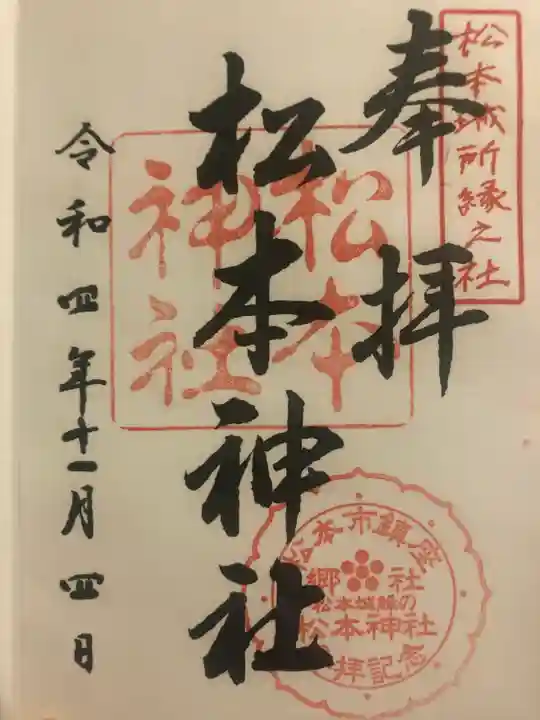 松本城所縁之社
奉拝
松本神社
松本
神社
令和四年十一月四日
松本市鎮座
郷社
松本城鎮の
松本神社
拝記念